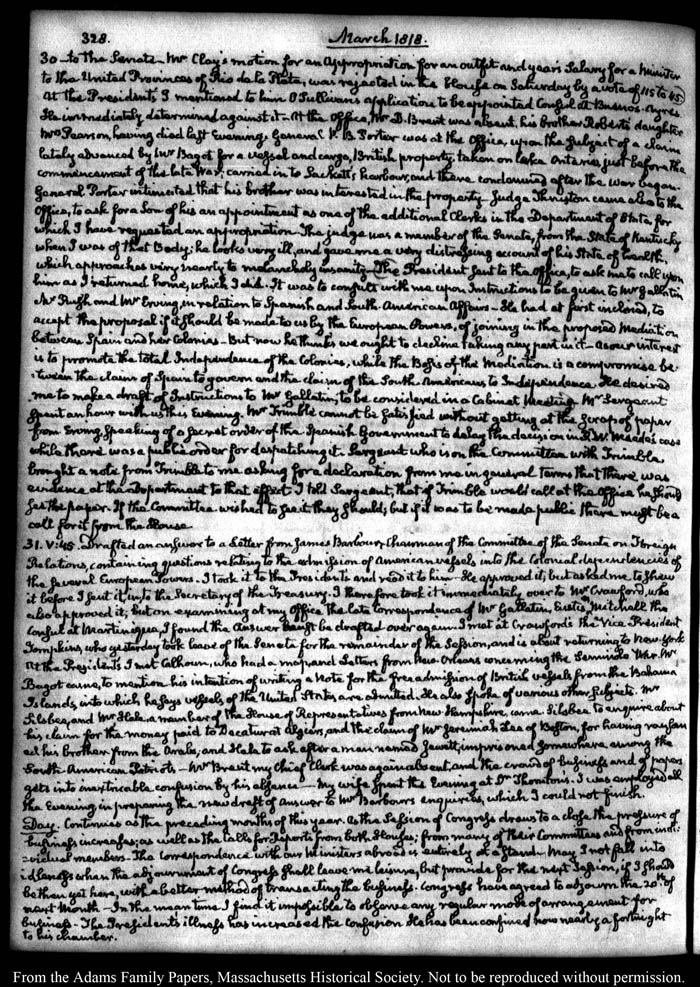 328. March 1818.
30 to the Senate. Mr Clay's motion for an Appropriation for an outfit and year's Salary for a Minister
to the United Provinces of Rio de la Plata, was rejected in the House on Saturday by a vote of 115 to 45.
At the Presidents I mentioned to him O'Sullivan's application to be appointed Consul at Buenos-Ayres
He immediately determined against it. At the Office, Mr D. Brent was absent, his brother Robert's daughter
Mrs Pearson, having died last Evening. General P. B. Porter was at the Office, upon the subject of a claim
lately advanced by Mr Bagot for a vessel and cargo, British property, taken on Lake Ontario, just before the
commencement of the late War, carried in to Sackett's harbour, and there condemned after the war began.
General Porter intimated that his brother was interested in the property. Judge Thruston came also to the
Office, to ask for a Son of his an appointment as one of the additional Clerks in the Department of State, for
which I have requested an appropriation. The judge was a member of the Senate, from the State of Kentucky
when I was of that Body; he looks very ill, and gave me a very distressing account of his State of health,
which approaches very nearly to melancholy insanity. The President sent to the office, to ask me to call upon
him as I returned home, which I did. It was to consult with me upon Instructions to be given to Mr Gallatin
Mr Rush and Mr Erving in relation to Spanish and South-American Affairs. He had at first inclined, to
accept the proposal if it should be made to us by the European Powers, of joining in the proposed Mediation
between Spain and her Colonies. But now he thinks we ought to decline taking any part in it. As our interest
is to promote the total Independence of the Colonies, while the Basis of the Mediation is a compromise be-
-tween the claim of Spain to govern and the claim of the South Americans to Independence. He desired
me to make a draft of Instructions to Mr Gallatin, to be considered in a Cabinet Meeting. Mr Sergeant
spent an hour with us this Evening. Mr Trimble cannot be satisfied without getting at the scrap of paper
from Erving, speaking of a secret order of the Spanish Government to delay the decision in R. W. Meade's case
while there was a public order for despatching it. Sergeant who is on the Committee with Trimble
brought a note from Trimble to me asking for a declaration from me in general terms that there was
evidence at the Department to that effect. I told Sergeant, that if Trimble would call at the Office he should
see the paper. If the Committee wished to see it they should; but if it was to be made public there must be a
call for it from the House
31. V:45. Drafted an answer to a Letter from James Barbour, Chairman of the Committee of the Senate on Foreign
Relations, containing questions relating to the admission of American vessels into the Colonial dependencies of
the several European Powers. I took it to the Presidents and read it to him. He approved it, but asked me to shew
it before I sent it in, to the Secretary of the Treasury. I therefore took it immediately over to Mr Crawford, who
also approved it, but on examining at my office the late correspondence of Mr Gallatin, Eustis, Mitchell the
Consul at Martinique, I found the Answer must be drafted over again. I met at Crawford's the Vice President
Tompkins, who yesterday took leave of the Senate for the remainder of the Session, and is about returning to New-York
At the Presidents I met Calhoun, who had a map, and Letters from New Orleans concerning the Seminole War. Mr
Bagot came, to mention his intention of writing a Note for the free admission of British vessels from the Bahama
Islands, into which he says vessels of the United States are admitted. He also spoke of various other subjects. Mr
Silsbee, and Mr Hale, a member of the House of Representatives from New Hampshire, came. Silsbee to enquire about
his claim for the money paid to Decatur at Algiers, and the claim of Mr Jeremiah Lee of Boston, for having ransom
ed his brother from the Arabs, and Hale to ask after a man named Jewett, imprisoned somewhere among the
South-American Patriots. Mr Brent, my Chief Clerk was again absent, and the crowd of business and of papers
gets into inextricable confusion by his absence. My wife spent the Evening at Dr Thornton's. I was employed all
the Evening in preparing the new draft of answer to Mr Barbour's enquiries, which I could not finish.
Day. Continues as the preceding months of this year. As the Session of Congress draws to a close the pressure of
business increases; as well as the calls for Reports from both Houses; from many of their Committees and from indi-
-vidual members. The correspondence with our Ministers abroad is entirely at a stand. May I not fall into
idleness when the adjournment of Congress shall leave me leisure, but provide for the next Session, if I should
be then yet here, with a better method of transacting the business. Congress have agreed to adjourn the 20th of
next Month. In the mean time I find it impossible to observe any regular mode of arrangement for
business. The President's illness has increased the confusion. He has been confined now nearly a fortnight
to his chamber.
From the Adams Family Papers, Massachusetts Historical Society. Not to be reproduced without permission.